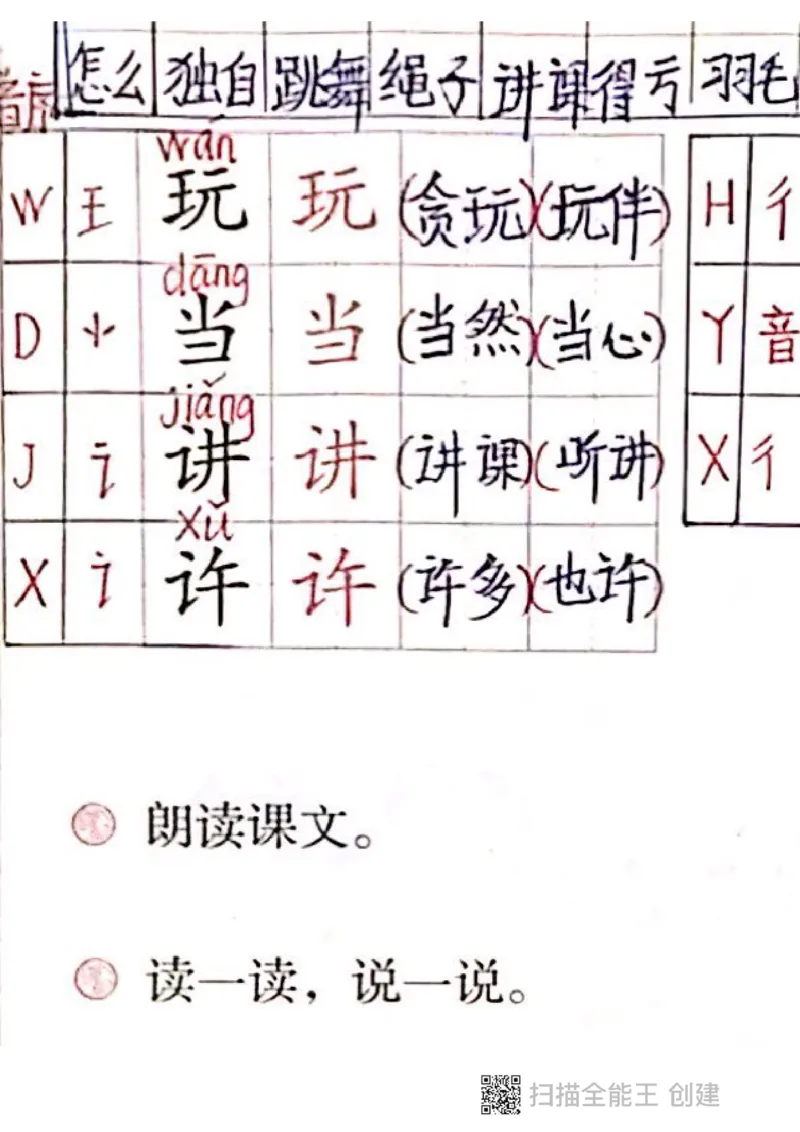 怎么 独自 跳舞 绳子 讲课 得亏 羽毛
音序
wán
W 王 玩 玩 (贪玩)(玩伴) H 彳
dāng
D ⺌ 当 当 (当然)(当心) Y 音
jiǎng
J 讠 讲 讲 (讲课)(听讲) X 彳
xǔ
X 讠 许 许 (许多)(也许)
朗读课文。
读一读，说一说。
扫描全能王 创建